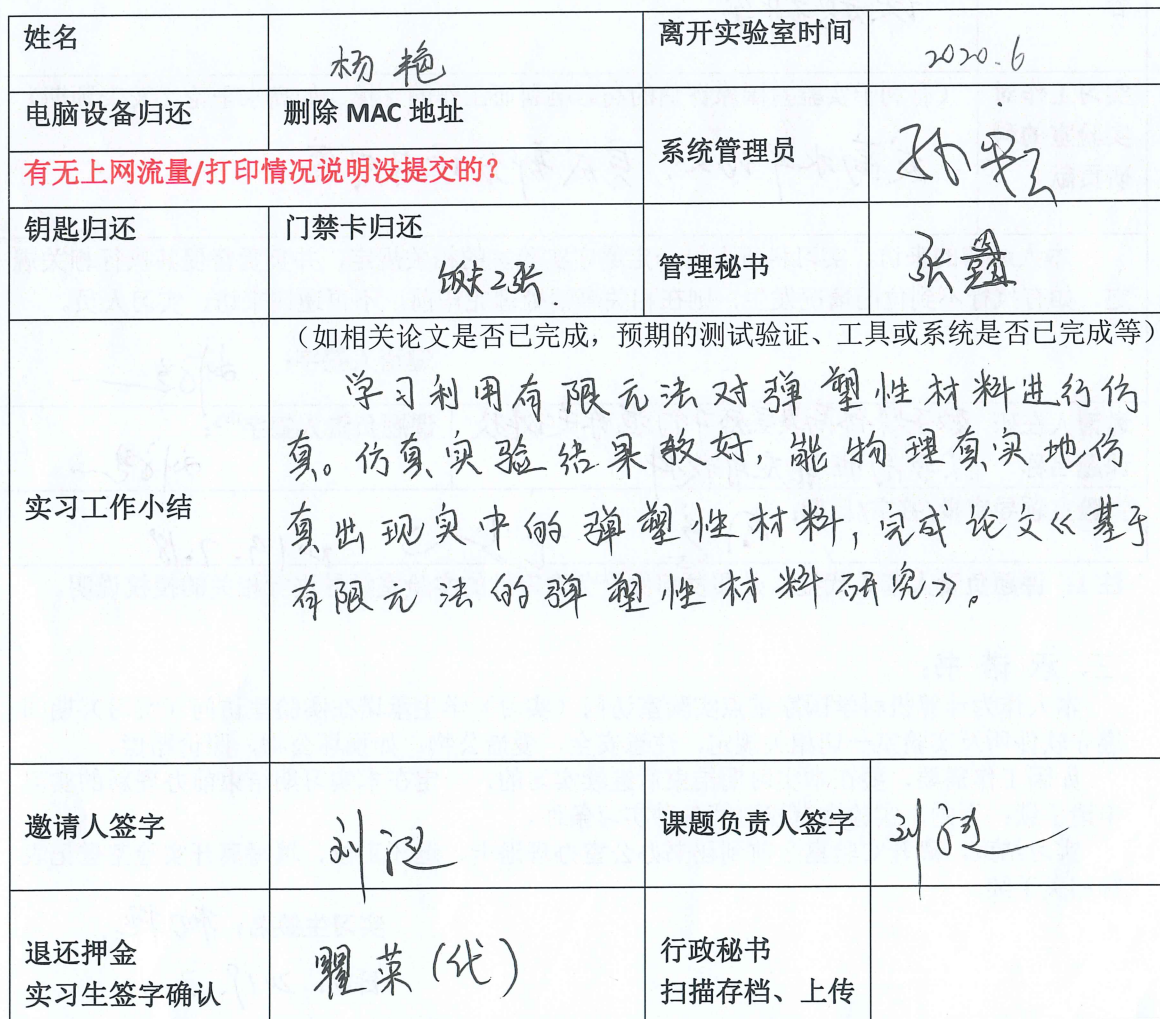 姓名 杨艳 离开实验室时间 2020.6
电脑设备归还 删除 MAC 地址 系统管理员
有无上网流量/打印情况说明没提交的？
钥匙归还 门禁卡归还 管理秘书 张
(如相关论文是否已完成，预期的测试验证、工具或系统是否已完成等)
实习工作小结
学习利用有限元法对弹塑性材料进行仿
真。仿真实验结果较好，能物理真实地仿
真出现实中的弹塑性材料，完成论文《基于
有限元法的弹塑性材料研究》。
邀请人签字 刘 课题负责人签字 刘
退还押金
实习生签字确认 瞿菜(代) 行政秘书
扫描存档、上传